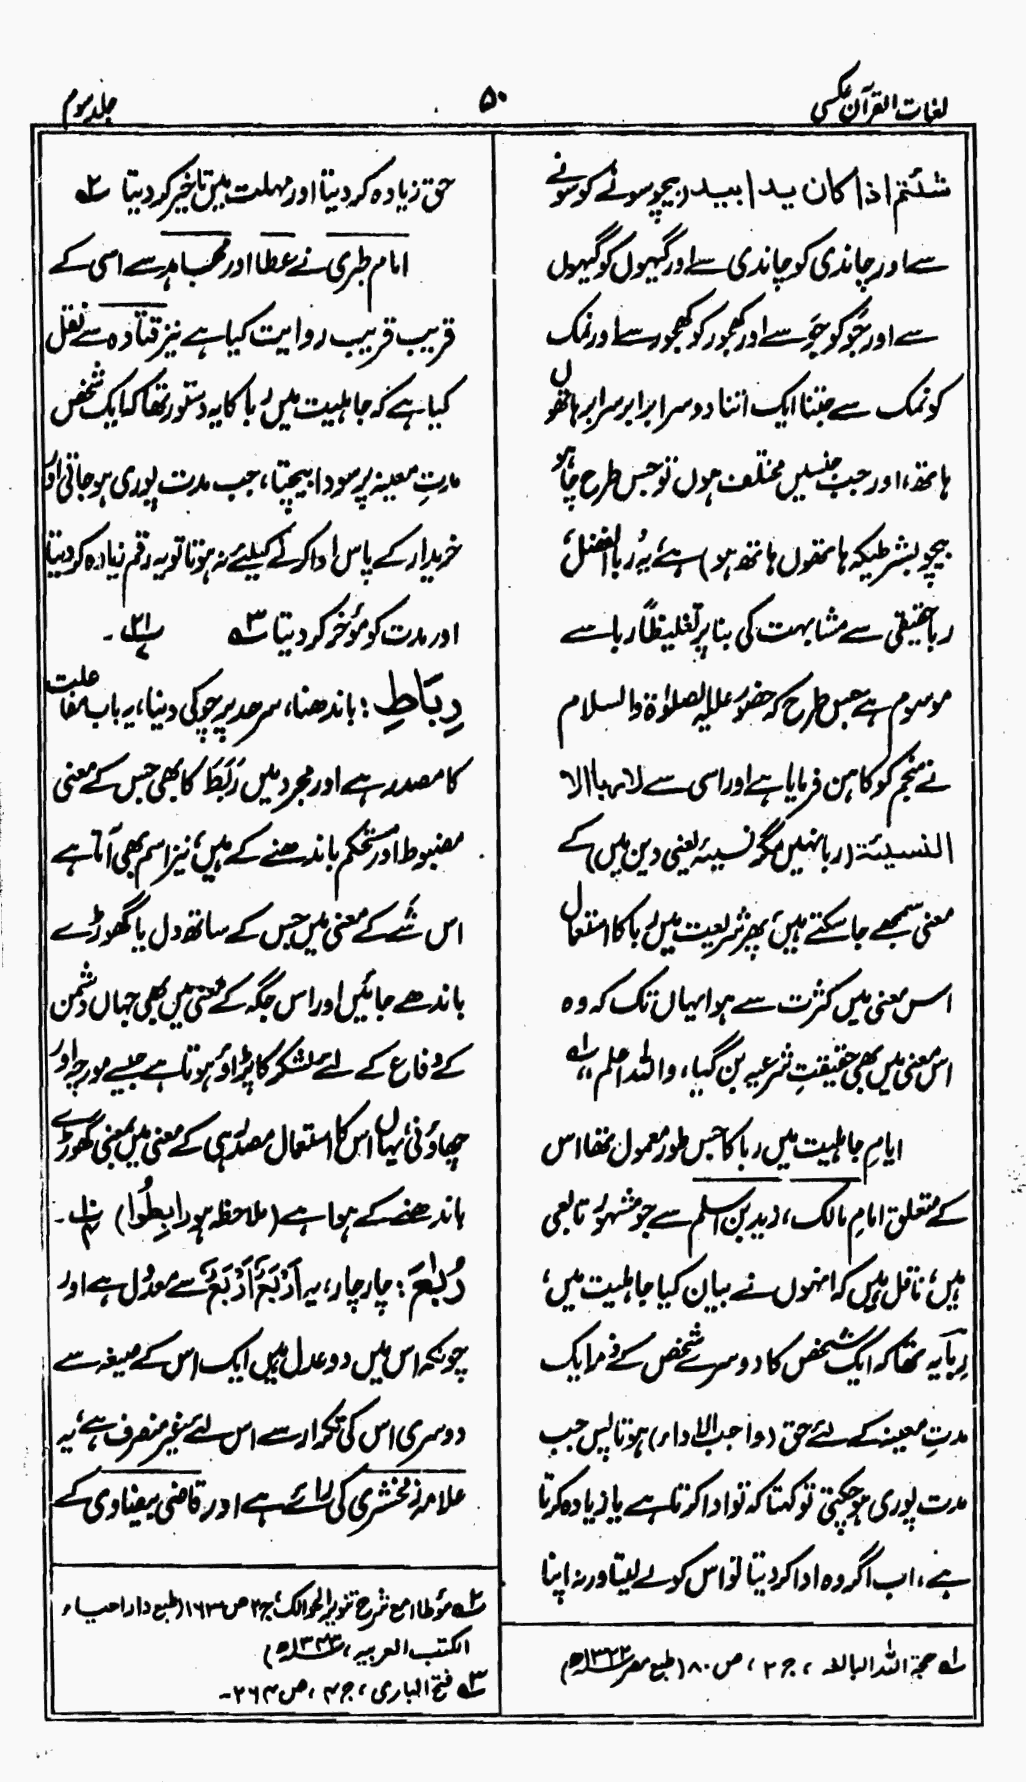 لغات القرآن عکسی
۵۰
جلد سوم
شئتم اذا کان یدا بید (بیچو سونے کو سونے
سے اور چاندی کو چاندی سے اور گیہوں کو گیہوں
سے اور جَو کو جَو سے اور کھجور کو کھجور سے اور نمک
کو نمک سے جتنا ایک اتنا دوسرا برابر سرابر ہاتھوں
ہاتھ، اور جب جنسیں مختلف ہوں تو جس طرح چاہو
بیچو بشرطیکہ ہاتھوں ہاتھ ہو) ہے، یہ ربا الفضل،
ربا حقیقی سے مشابہت کی بنا پر تغلیظاً ربا سے
موسوم ہے جس طرح کہ حضور علیہ الصلوٰۃ والسلام
نے منجم کو کاہن فرمایا ہے اور اسی سے لا ربا الا
النسیئۃ (ربا نہیں مگر نسیئہ یعنی دین میں) کے
معنی سمجھے جا سکتے ہیں، پھر شریعت میں ربا کا استعمال
اس معنی میں کثرت سے ہوا یہاں تک کہ وہ
اس معنی میں بھی حقیقتِ شرعیہ بن گیا، واللہ اعلم ؂۱
ایامِ جاہلیت میں ربا کا جس طور معمول تھا اس
کے متعلق امامِ مالک، زید بن اسلم سے جو مشہور تابعی
ہیں، ناقل ہیں کہ انہوں نے بیان کیا جاہلیت میں،
رِبا یہ تھا کہ ایک شخص کا دوسرے شخص کے ذمہ ایک
مدتِ معینہ کے لئے حق (واجب الاداء) ہوتا پس جب
مدت پوری ہو چکتی تو کہتا کہ تو ادا کرتا ہے یا زیادہ کرتا
ہے، اب اگر وہ ادا کر دیتا تو اس کو لے لیتا ورنہ اپنا
؂۱ حجۃ اللہ البالغہ، ج ۲، ص ۸۰ (طبع مصر ۱۳۲۲ھ)
حق زیادہ کر دیتا اور مہلت میں تاخیر کر دیتا ؂۲
امام طبری نے عطا اور مجاہد سے اسی کے
قریب قریب روایت کیا ہے نیز قتادہ سے نقل
کیا ہے کہ جاہلیت میں ربا کا یہ دستور تھا کہ ایک شخص
مدتِ معینہ پر سودا بیچتا، جب مدت پوری ہو جاتی اور
خریدار کے پاس ادا کرنے کیلئے نہ ہوتا تو یہ رقم زیادہ کر دیتا
اور مدت کو مؤخر کر دیتا ؂۳ ۲۱ ۔
رِبَاطِ: باندھنا، سرحد پر چوکی دینا، یہ باب مفاعلت
کا مصدر ہے اور مجرد میں رَبَطَ کا بھی جس کے معنی
مضبوط اور مستحکم باندھنے کے ہیں، نیز اسم بھی آتا ہے
اس شَے کے معنی میں جس کے ساتھ دل یا گھوڑے
باندھے جائیں اور اس جگہ کے معنی میں بھی جہاں دشمن
کے دفاع کے لئے لشکر کا پڑاؤ ہوتا ہے جیسے مورچہ اور
چھاؤنی، یہاں اس کا استعمال مصدر ہی کے معنی میں یعنی گھوڑے
باندھنے کے ہوا ہے (ملاحظہ ہو رابِطُوا) ۱۰ ۔
رُبٰعَ: چار چار، یہ اَرْبَعُ اَرْبَعُ سے معدول ہے اور
چونکہ اس میں دو عدل ہیں ایک اس کے صیغہ سے
دوسری اس کی تکرار سے اس لئے غیر منصرف ہے، یہ
علامہ زمخشری کی رائے ہے اور قاضی بیضاوی کے
؂۲ مؤطا مع شرح تنویر الحوالک، ج ۲ ص ۱۶۳ (طبع دار احیاء
الکتب العربیہ، ۱۳۴۳ھ)
؂۳ فتح الباری، ج ۴، ص ۲۶۴۔